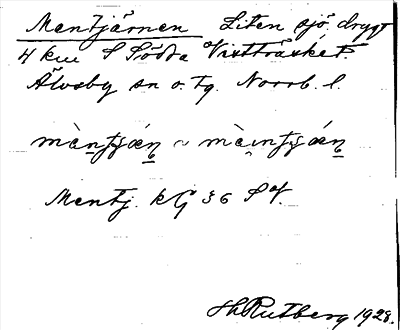 Mentjärnen Liten sjö, drygt
4 km S Södra Vistträsket.
Älvsby sn o. tg. Norrb. l.
Mentj. kG 36 Sf.
Hh Rutberg 1928.